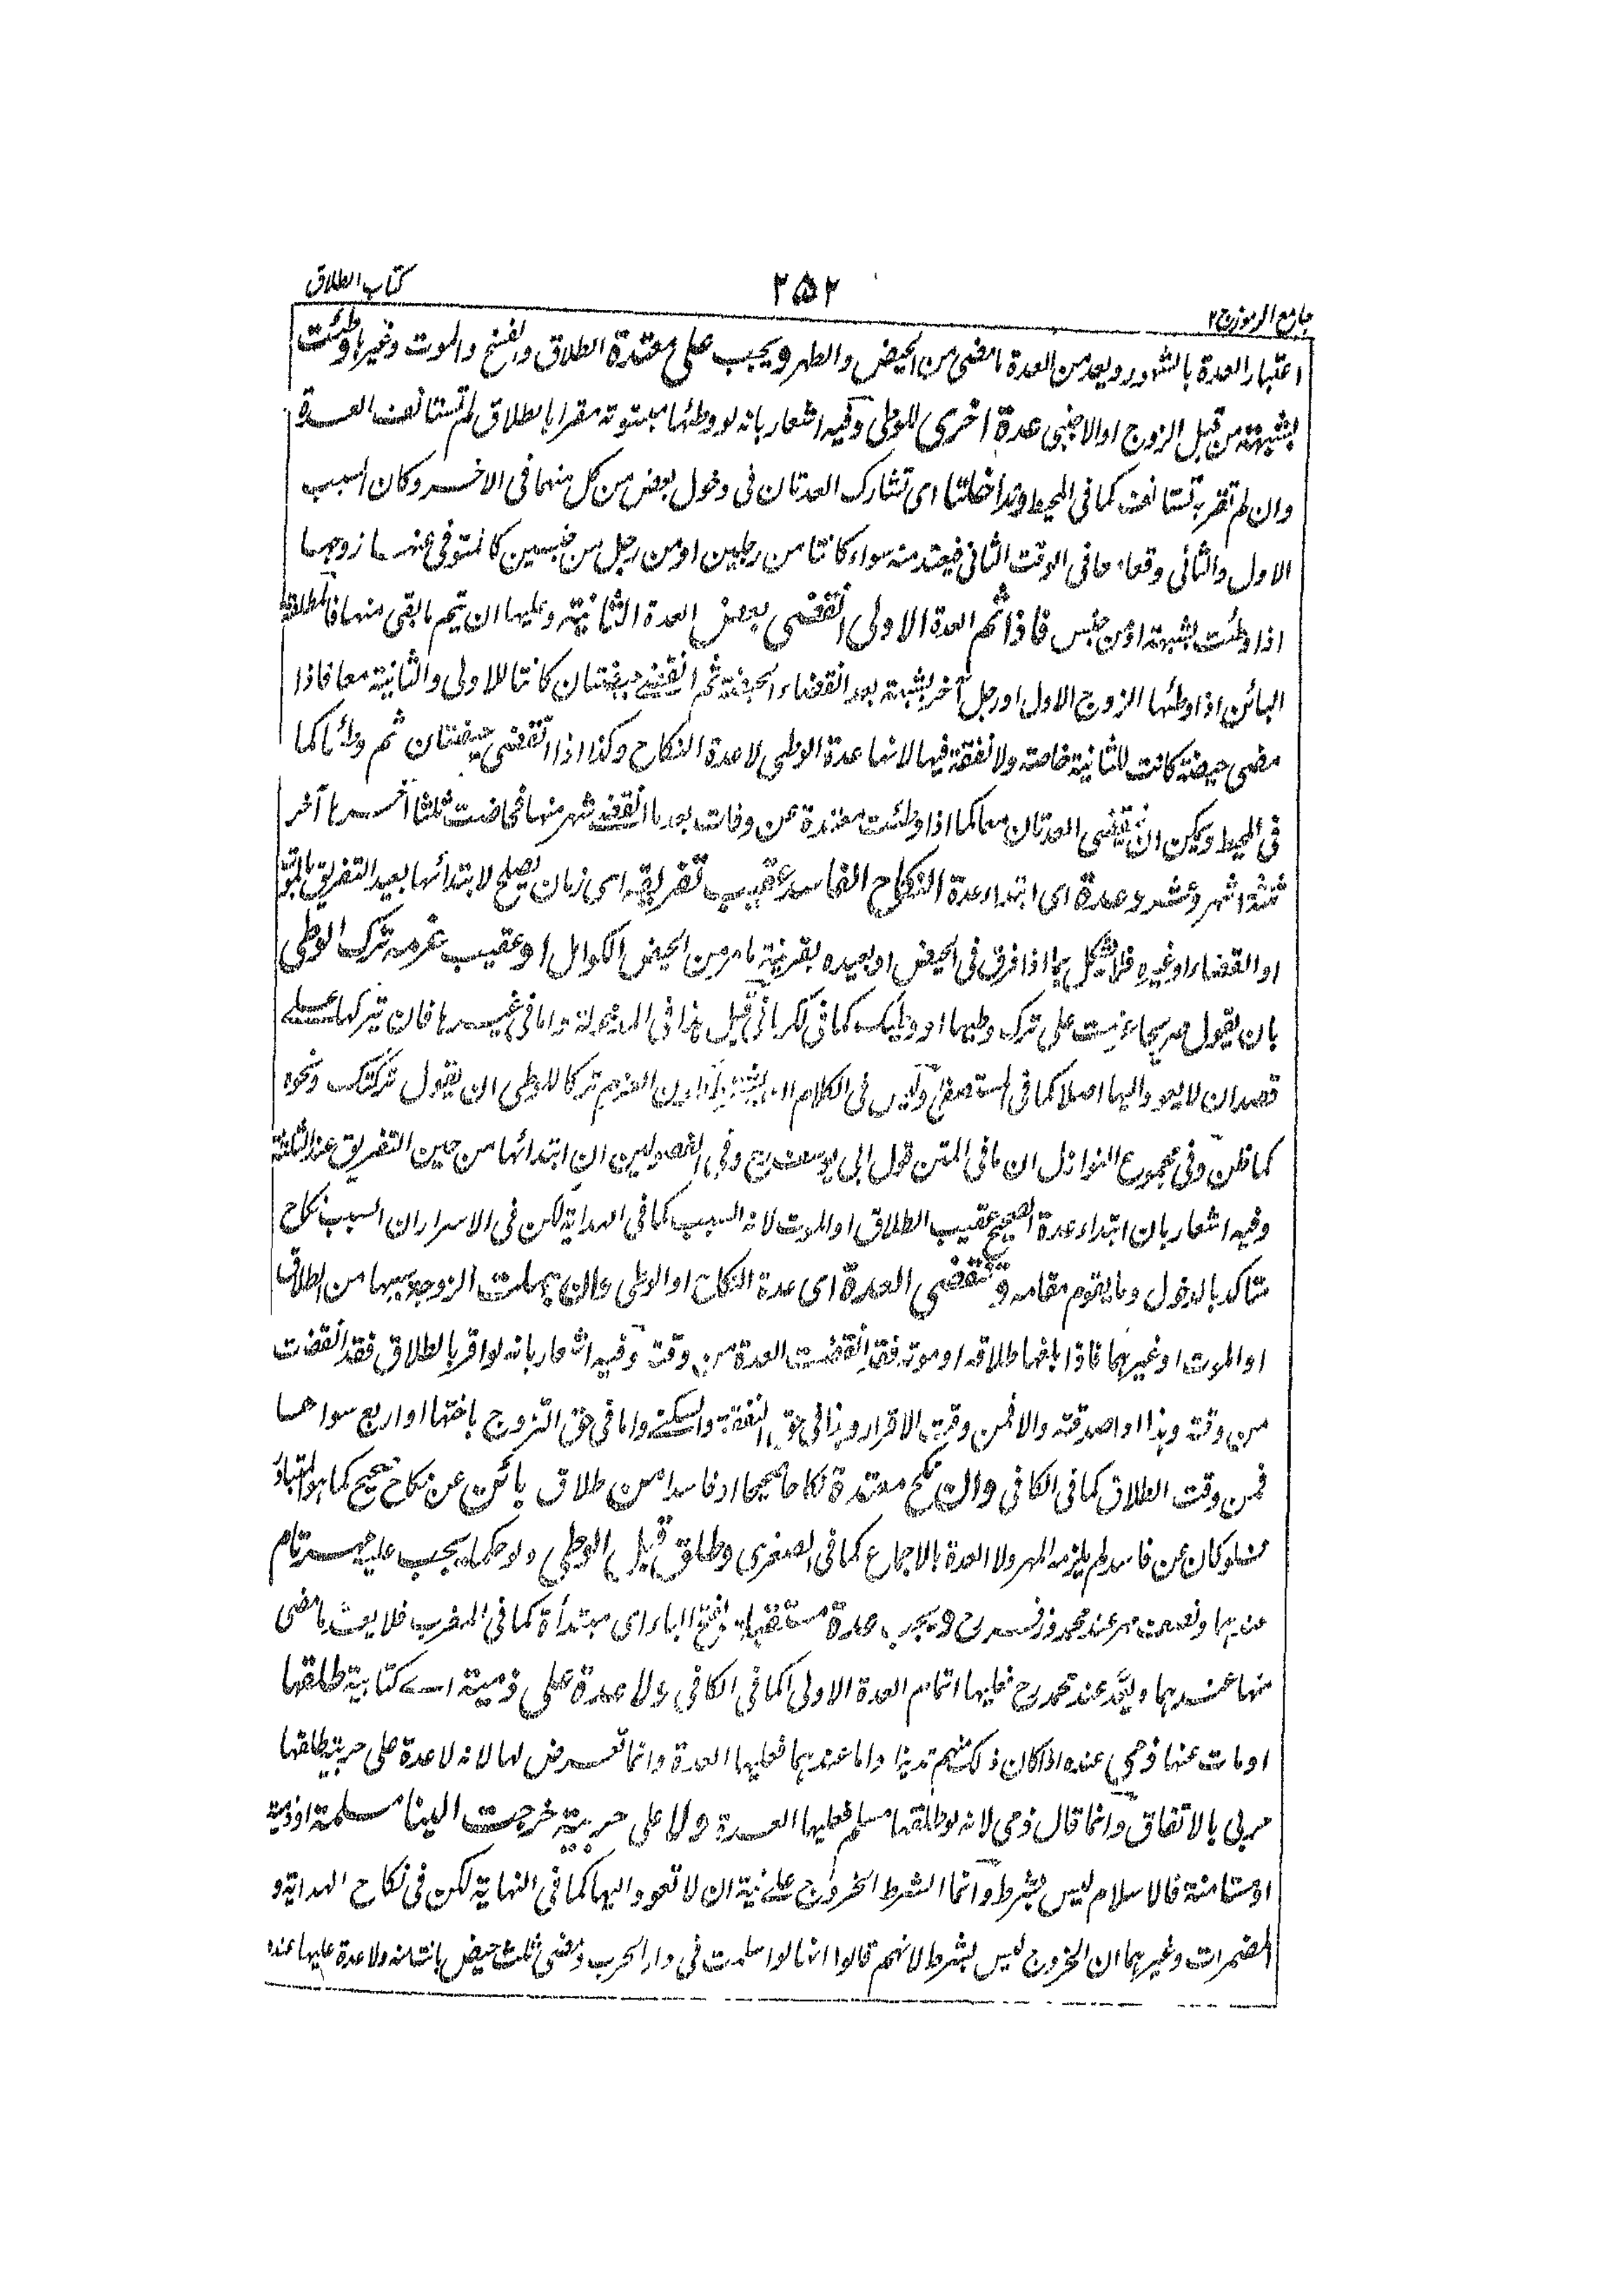 جامع الرموز ج۲
۲۵۲
كتاب الطلاق
اعتبار العدة بالشهور ويعد من العدة ما مضى من الحيض والطهر ويجب على معتدة الطلاق والفسخ والموت وغيرها وطئت
بشبهة من قبل الزوج او الاجنبي عدة اخرى للوطى وفيه اشعار بانه لو وطئها مبتوتة مقرا بالطلاق لم تستانف العدة
وان لم تقربه تستانف كما في المحيط وتداخلتا اى تشارك العدتان فى دخول بعض من كل منهما فى الاخر وكان السبب
الاول والثانى وقعا معا فى الوقت الثانى فيعتد منه سواء كانتا من رجلين او من رجل من جنسين كالمتوفى عنها زوجها
اذا وطئت بشبهة او من جنس فاذا تم العدة الاولى انقضى بعض العدة الثانية وعليها ان تتم ما بقى منها فالمطلقة
البائن اذا وطئها الزوج الاول او رجل آخر بشبهة بعد انقضاء الحيضة ثم انقضے حيضتان كانتا للاولى والثانية معا فاذا
مضى حيضة كانت للثانية خاصة ولا نفقة فيها لانها عدة الوطى لا عدة النكاح وكذا اذا انقضى حيضتان ثم وطئها كما
فى المحيط ويمكن ان تنقضى العدتان معا كما اذا وطئت معتدة عن وفات بعد ما انقضے شهر منها فحاضت ثلثا آخرها آخر
ثلثة اشهر وعشر وعدة اى ابتداء عدة النكاح الفاسد عقيب تفريقه اى زمان يصلح لابتدائها بعيد التفريق
او القضاء او غيره فلا يشكل بما اذا فرق فى الحيض او بعيده بقرينة ما مر من الحيض الكوامل او عقيب عزمه ترك الوطى
بان يقول صريحا عزمت على ترك وطيها او وطيك كما فى الكرمانى قيل هذا فى المدخولة واما فى غيرها فان يتركها علے
قصد ان لا يعود اليها اصلا كما فى المستصفى وليس فى الكلام ان العزم تركا للوطى ان يقول تركتك ونحوه
كما ظن وفى مجموع النوازل ان ما فى المتن قول ابى يوسف رح وفى الفصولين ان ابتدائها من حين التفريق عند الثلثة
وفيه اشعار بان ابتداء عدة الصحيح عقيب الطلاق او الموت لانه السبب كما فى الهداية لكن فى الاسرار ان السبب نكاح
متاكد بالدخول وما يقوم مقامه وتنقضى العدة اى عدة النكاح او الوطى وان جهلت الزوجة سببها من الطلاق
او الموت او غيرهما فاذا بلغها طلاقه او موته فقد انقضت العدة من وقته وفيه اشعار بانه لو اقر بالطلاق فقد انقضت
من وقته وهذا اذا صدقته والا فمن وقت الاقرار وهذا فى حق النفقة والسكنے واما فى حق التزوج باختها او اربع سواها
فمن وقت الطلاق كما فى الكافى وان نكح معتدة نكاحا صحيحا او فاسدا من طلاق بائن عن نكاح صحيح كما هو المتبادر
منه فلو كان عن فاسد لم يلزمه المهر ولا العدة بالاجماع كما فى الصغرى وطلق قبل الوطى ولو حكما يجب عليه مهر تام
عندهما ونصف مهر عند محمد وزفر رح ويجب عدة مستقبلة بفتح الباء اى مبتدأة كما فى المغرب فلا يعد ما مضى
منها عندهما ويعد عند محمد رح فعليها اتمام العدة الاولى كما فى الكافى ولا عدة على ذمية اے كتابية طلقها
او مات عنها ذمى عنده اذا كان ذلك منهم تدينا واما عندهما فعليها العدة وانما تعرض لها لانه لا عدة على حربية طلقها
حربى بالاتفاق وانما قال ذمى لانه لو طلقها مسلم فعليها العدة ولا على حربية خرجت الينا مسلمة او ذمية
او مستامنة فالاسلام ليس بشرط وانما الشرط الخروج علے نية ان لا تعود اليها كما فى النهاية لكن فى نكاح الهداية و
المضمرات وغيرهما ان الخروج ليس بشرط لانهم قالوا انها لو اسلمت فى دار الحرب ومضى ثلث حيض بانت منه ولا عدة عليها عنده